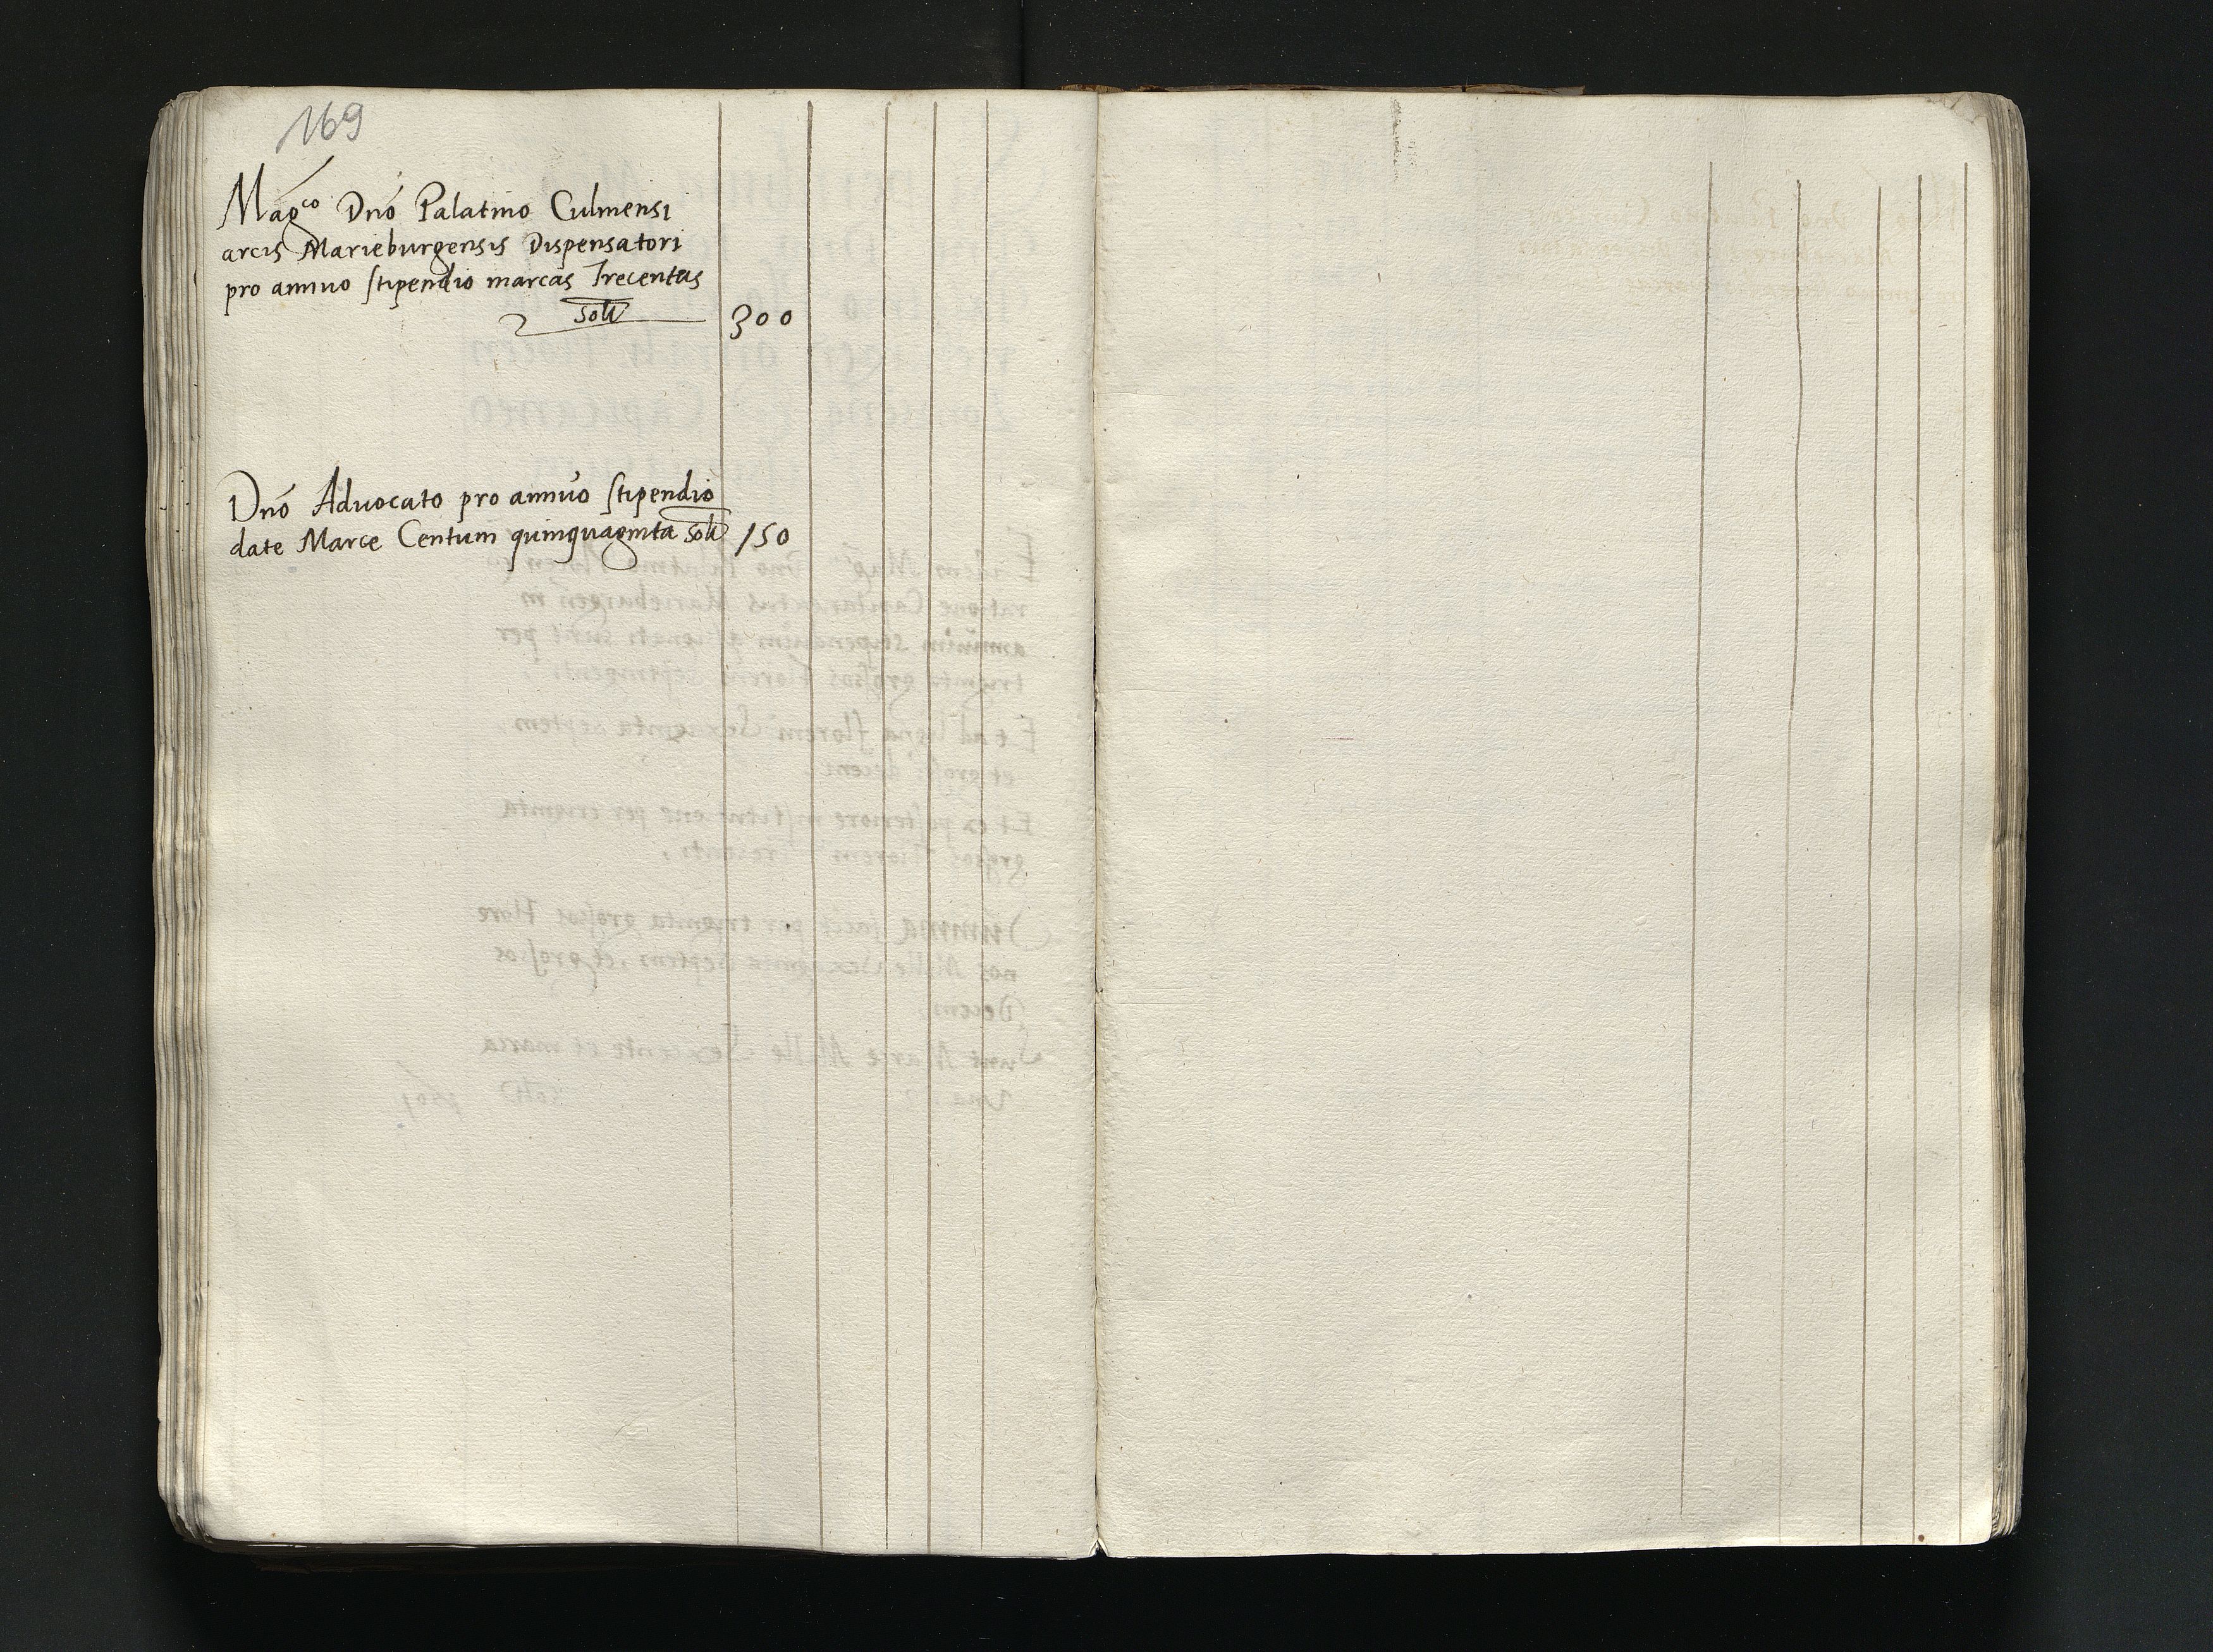 169
Mag^co Dno Palatino Culmensi
arcis Marieburgensis Dispensatori
pro annuo stipendio marcas Trecentas
solu 300
Dno Advocato pro annuo stipendio
date Marce Centum quinquaginta solu 150